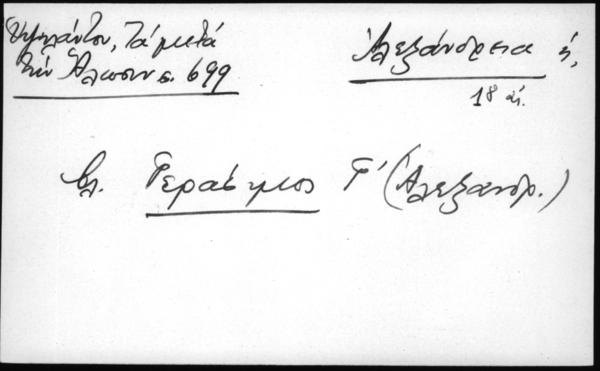 Ὑψηλάντου, Τά μετά
τήν Ἅλωσιν σ. 699
Ἀλεξάνδρεια ἡ,
18 αἰ.
βλ. Γεράσιμος Γ' (Ἀλεξανδρ.)